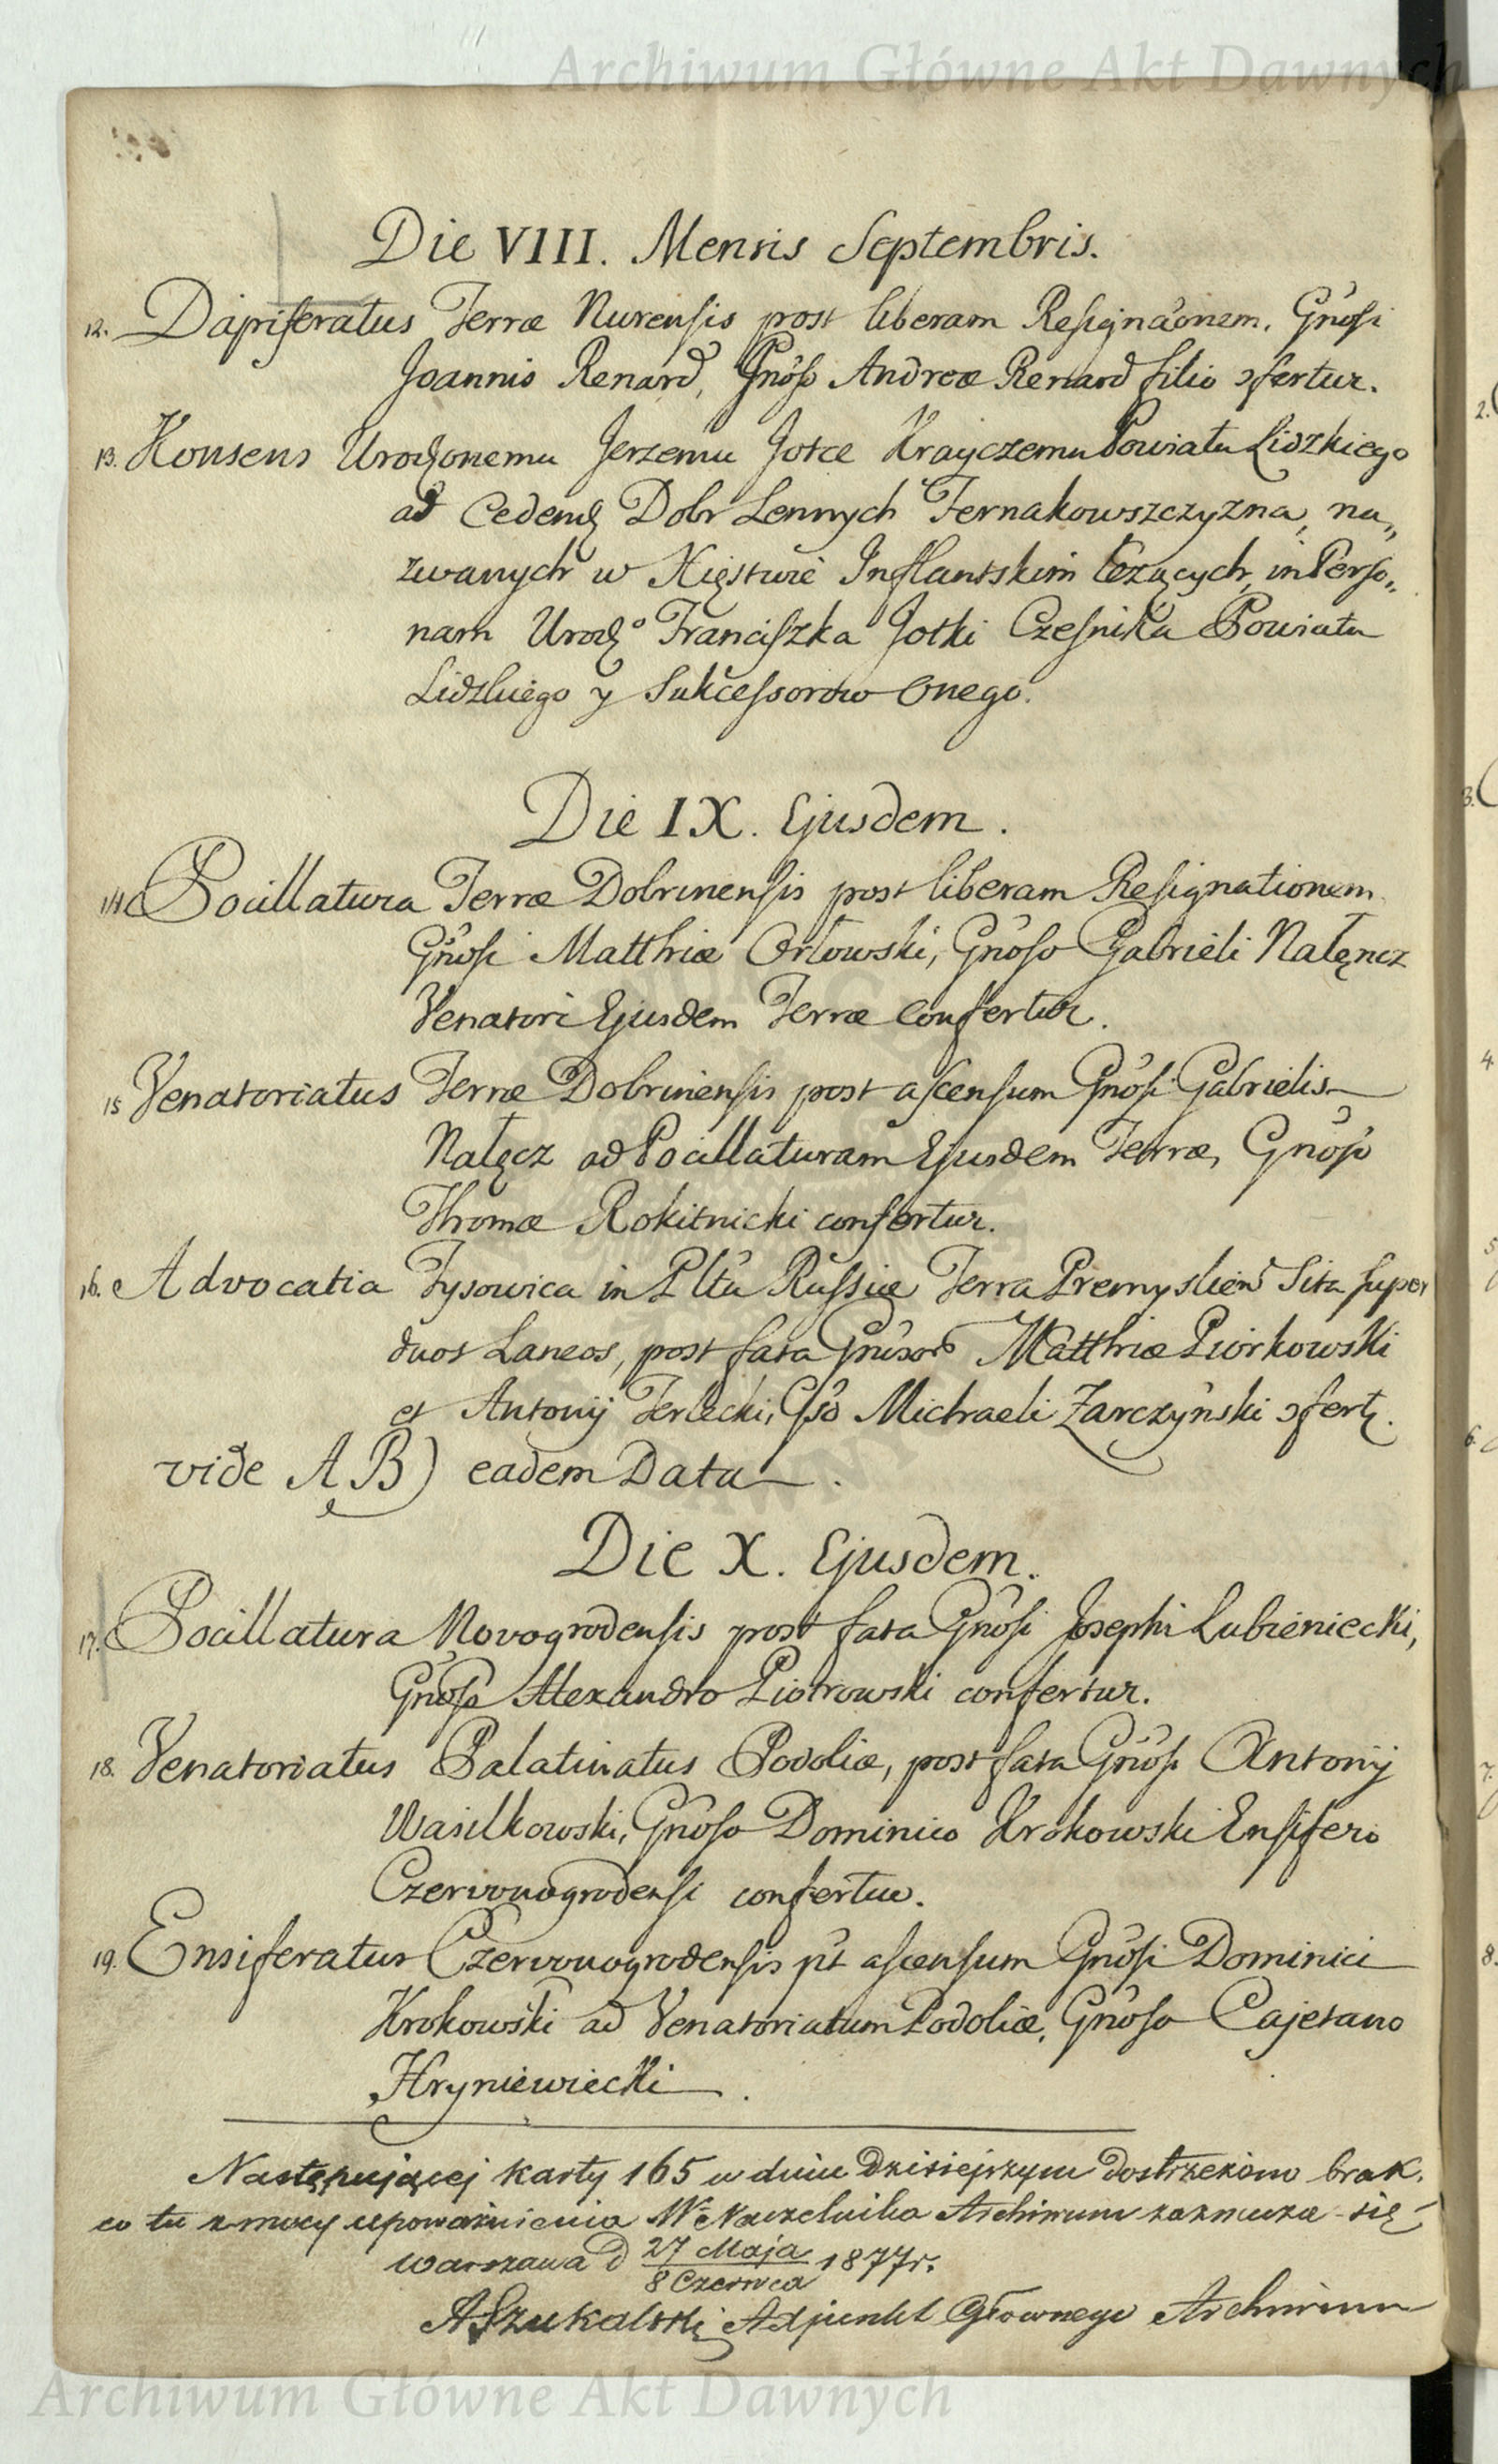 Archiwum Główne Akt Dawnych
Die VIII. Mensis Septembris.
12. Dapiferatus Terræ Nurensis post liberam Resignãonem. Gnõsi
Joannis Renard, Gnõso Andreæ Renard filio ɔfertur.
13. Konsens Urodzonemu Jerzemu Jotce Krayczemu Powiatu Lidzkiego
ad Cedend Dobr Lennych Ternakowszczyzna, na„
zwanych w Xięstwie Inflantskim leżących, in Perso„
nam Urodzo Franciszka Jotki Czesnika Powiatu
Lidzkiego y Sukcessorow Onego.
Die IX. Ejusdem.
14. Pocillatura Terræ Dobrinensis post liberam Resignationem
Gnõsi Matthiæ Orłowski, Gnõso Gabrieli Nałęncz
Venatori Ejusdem Terræ Confertur.
15 Venatoriatus Terræ Dobrinensis post ascensum Gnõsi Gabrielis
Nałęcz ad Pocillaturam Ejusdem Terræ, Gnõso
Thomæ Rokitnicki confertur.
16. Advocatia Tysowica in Pltũ Russiæ Terra Premyslien Sita super
duos Laneos, post fata Matthiæ Piorkowski
et Antonij Terlecki, Gsõ Michaeli Zarczyński ɔfert.
vide A B) eadem Data.
Die X. Ejusdem.
17. Pocillatura Novogrodensis post fata Gnõsi Josephi Lubieniecki,
Gnõso Alexandro Piotrowski confertur.
18. Venatoriatus Palatinatus Podoliæ, post fata Gnõsi Antonij
Wasilkowski, Gnõso Dominico Krokowski Ensifero
Czerwonogrodensi confertur.
19. Ensiferatus Czerwonogrodensis pst ascensum Gnõsi Dominici
Krokowski ad Venatoriatum Podoliæ, Gnõso Cajetano
Hryniewiecki.
Następującej karty 165 w dniu dzisiejszym dostrzeżono brak.
co tu z mocy upoważnienia W. Naczelnika Archiwum zaznacza się
Warszawa d 27 Maja / 8 Czerwca 1877 r.
ASzukalski Adjunkt Głownego Archiwum
Archiwum Główne Akt Dawnych